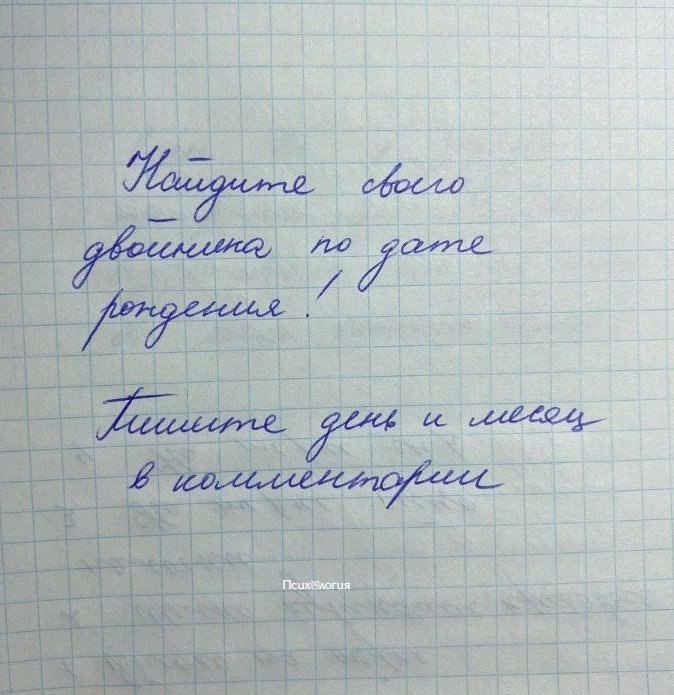 Найдите своего
двойника по дате
рождения!
Пишите день и месяц
в комментарии
Психология